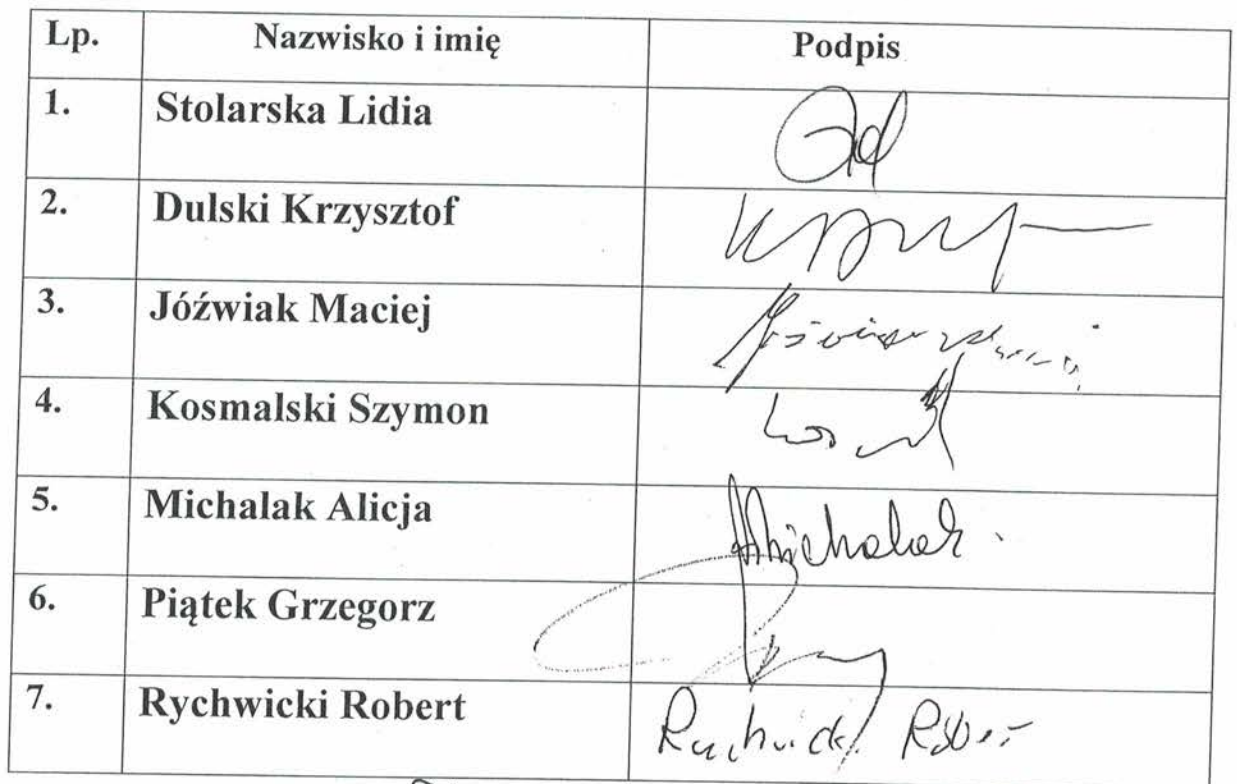 Lp. Nazwisko i imię Podpis
1. Stolarska Lidia
2. Dulski Krzysztof
3. Jóźwiak Maciej
4. Kosmalski Szymon
5. Michalak Alicja AMichalak
6. Piątek Grzegorz
7. Rychwicki Robert Rychwicki Robert